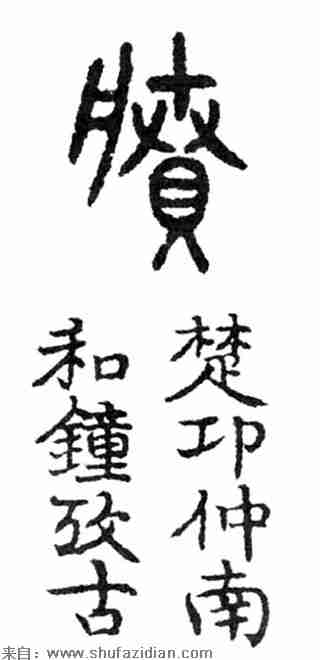 楚卭仲南
和鐘攷古
来自：www.shufazidian.com